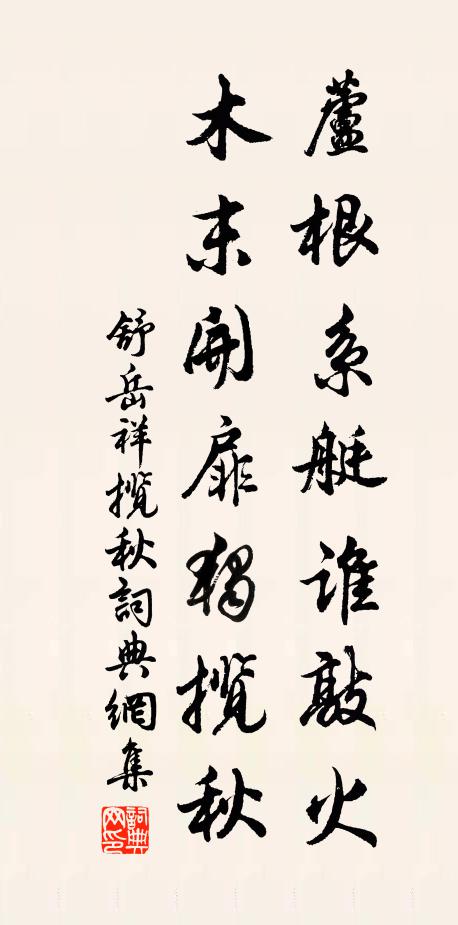 蘆根系艇誰敲火
木末開扉獨攬秋
舒岳祥攬秋詞典網集
詞典網印